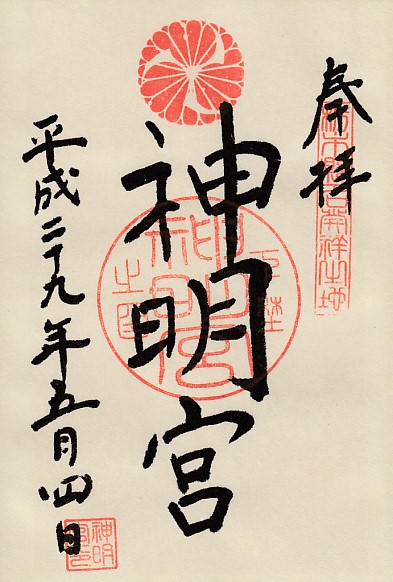 奉拝
神明宮
平成二十九年五月四日
神明宮印